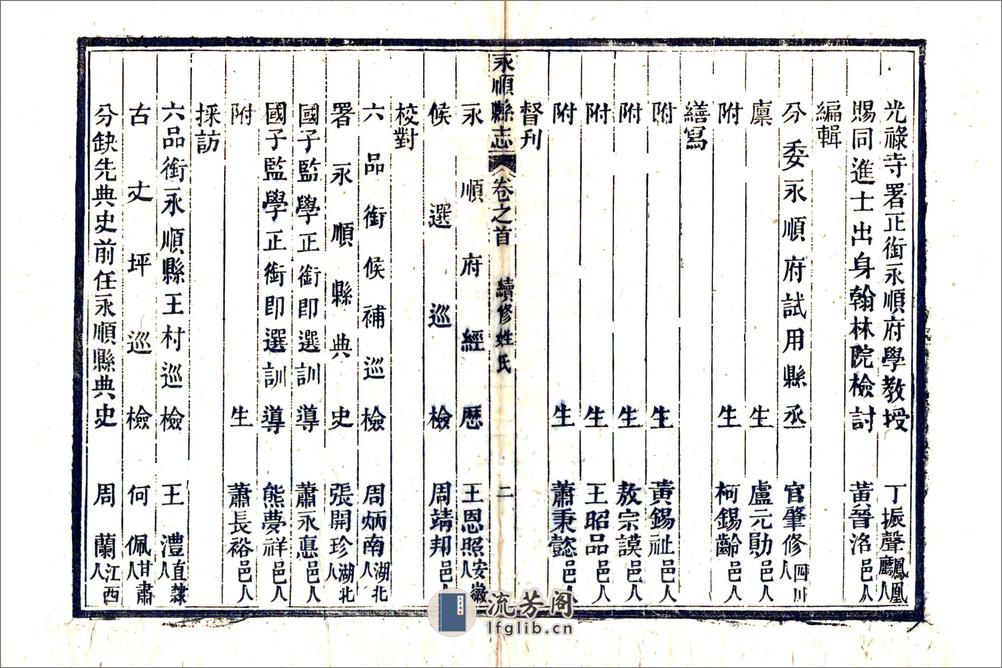 光祿寺署正銜永順府學教授 丁振聲鳳凰廳人
賜同進士出身翰林院檢討 黃晉洛邑人
編輯
分委永順府試用縣丞 官肇修四川人
廩生 盧元勛邑人
附生 柯錫齡邑人
繕寫
附生 黃錫祉邑人
附生 敖宗謨邑人
附生 王昭品邑人
附生 蕭秉懿邑人
督刊
永順縣志 卷之首 續修姓氏 二
永順府經歷 王恩照安徽人
候選巡檢 周靖邦邑人
校對
六品銜候補巡檢 周炳南湖北人
署永順縣典史 張開珍湖北人
國子監學正銜即選訓導 蕭永惠邑人
國子監學正銜即選訓導 熊夢祥邑人
附生 蕭長裕邑人
採訪
六品銜永順縣王村巡檢 王澧直隸人
古丈坪巡檢 何佩甘肅人
分缺先典史前任永順縣典史 周蘭江西人
流芳阁
lfglib.cn